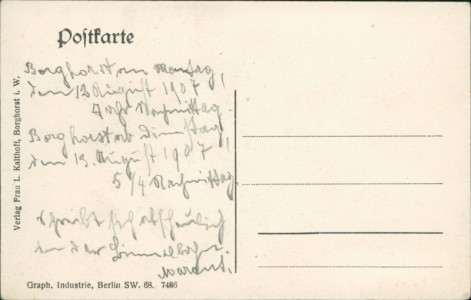 Postkarte
Borghorst an Montag,
den 12 August 1907
7 Uhr Nachmittag.
Borghorst ab Dienstag,
den 13. August 1907
5 1/4 Nachmittag.
schreibt sich abscheulich
in der
Verlag Frau L. Kalthoff, Borghorst i. W.
Graph. Industrie, Berlin SW. 68. 7486